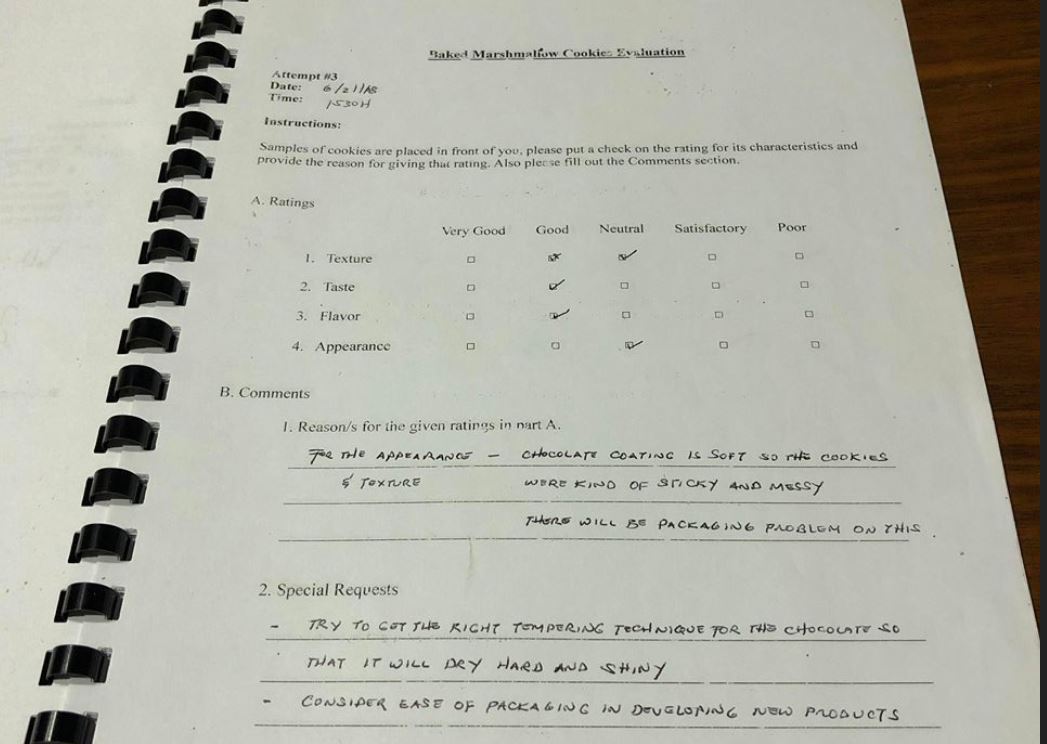 Baked Marshmallow Cookies Evaluation
Attempt #3
Date: 6/21/
Time: 1530H
Instructions:
Samples of cookies are placed in front of you, please put a check on the rating for its characteristics and
provide the reason for giving that rating. Also please fill out the Comments section.
A. Ratings
Very Good Good Neutral Satisfactory Poor
1. Texture
2. Taste
3. Flavor
4. Appearance
B. Comments
1. Reason/s for the given ratings in part A.
FOR THE APPEARANCE - CHOCOLATE COATING IS SOFT SO THE COOKIES
& TEXTURE WERE KIND OF STICKY AND MESSY
THERE WILL BE PACKAGING PROBLEM ON THIS.
2. Special Requests
- TRY TO GET THE RIGHT TEMPERING TECHNIQUE FOR THE CHOCOLATE SO
THAT IT WILL DRY HARD AND SHINY
- CONSIDER EASE OF PACKAGING IN DEVELOPING NEW PRODUCTS